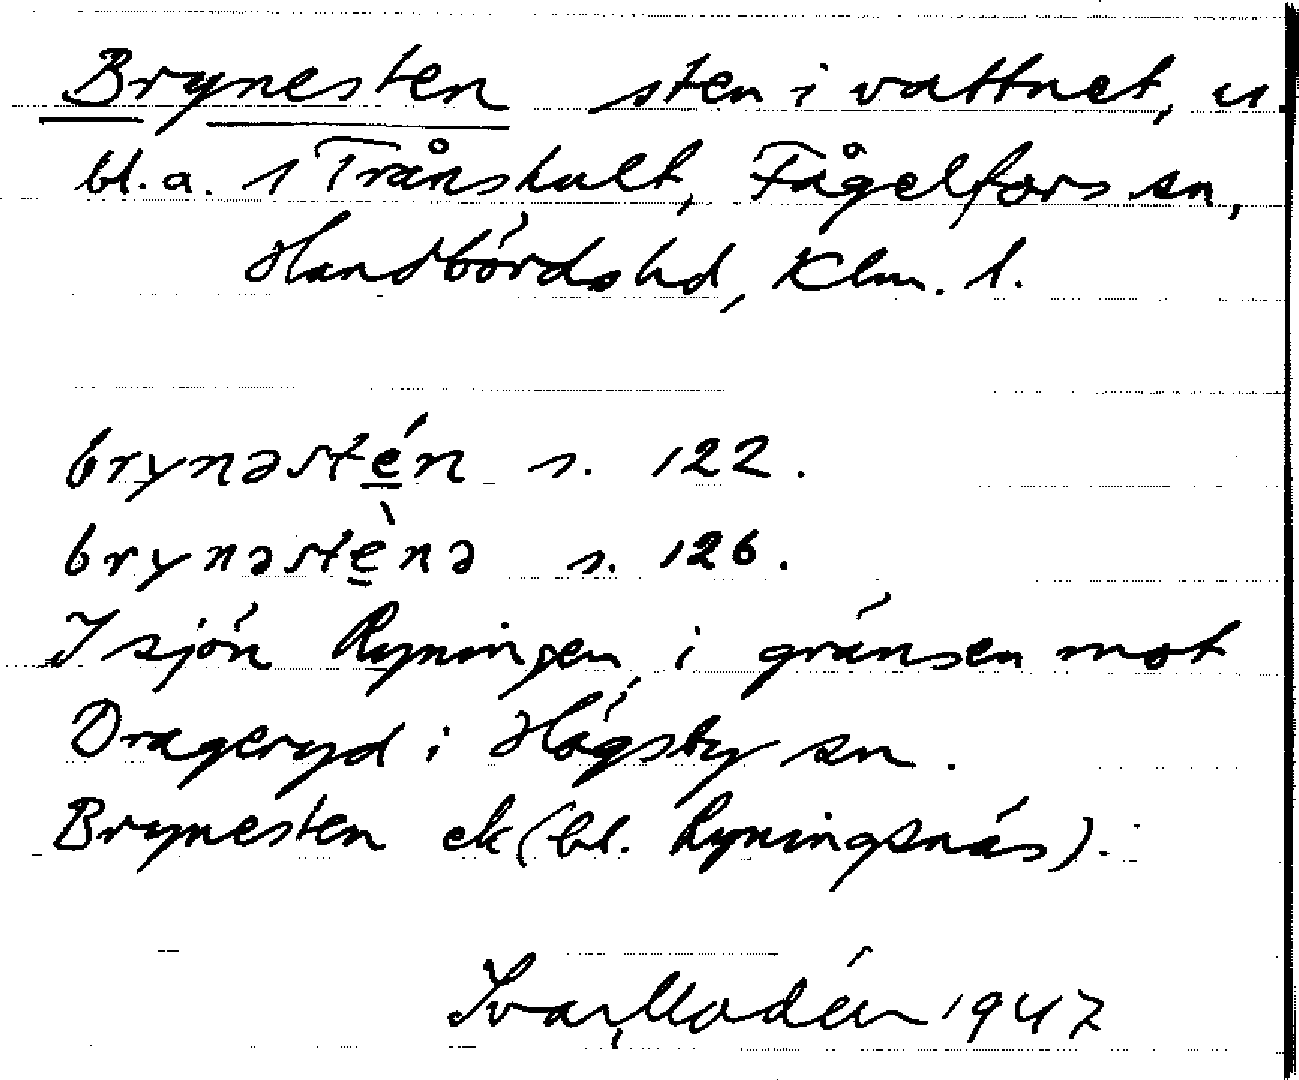 Brynesten sten i vattnet, u.
bl.a. 1 Trånshult, Fågelfors sn,
Handbörds hd, Klm. l.
brynəstén s. 122.
brynəstènə s. 126.
I sjön Ryningen, i gränsen mot
Drageryd i Högsby sn.
Brynesten ek (bl. Ryningsnäs).
Ivar Modéer 1947